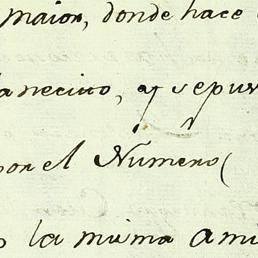 maior, donde hace
necito, y sepu
por el Numero(
la misma ami